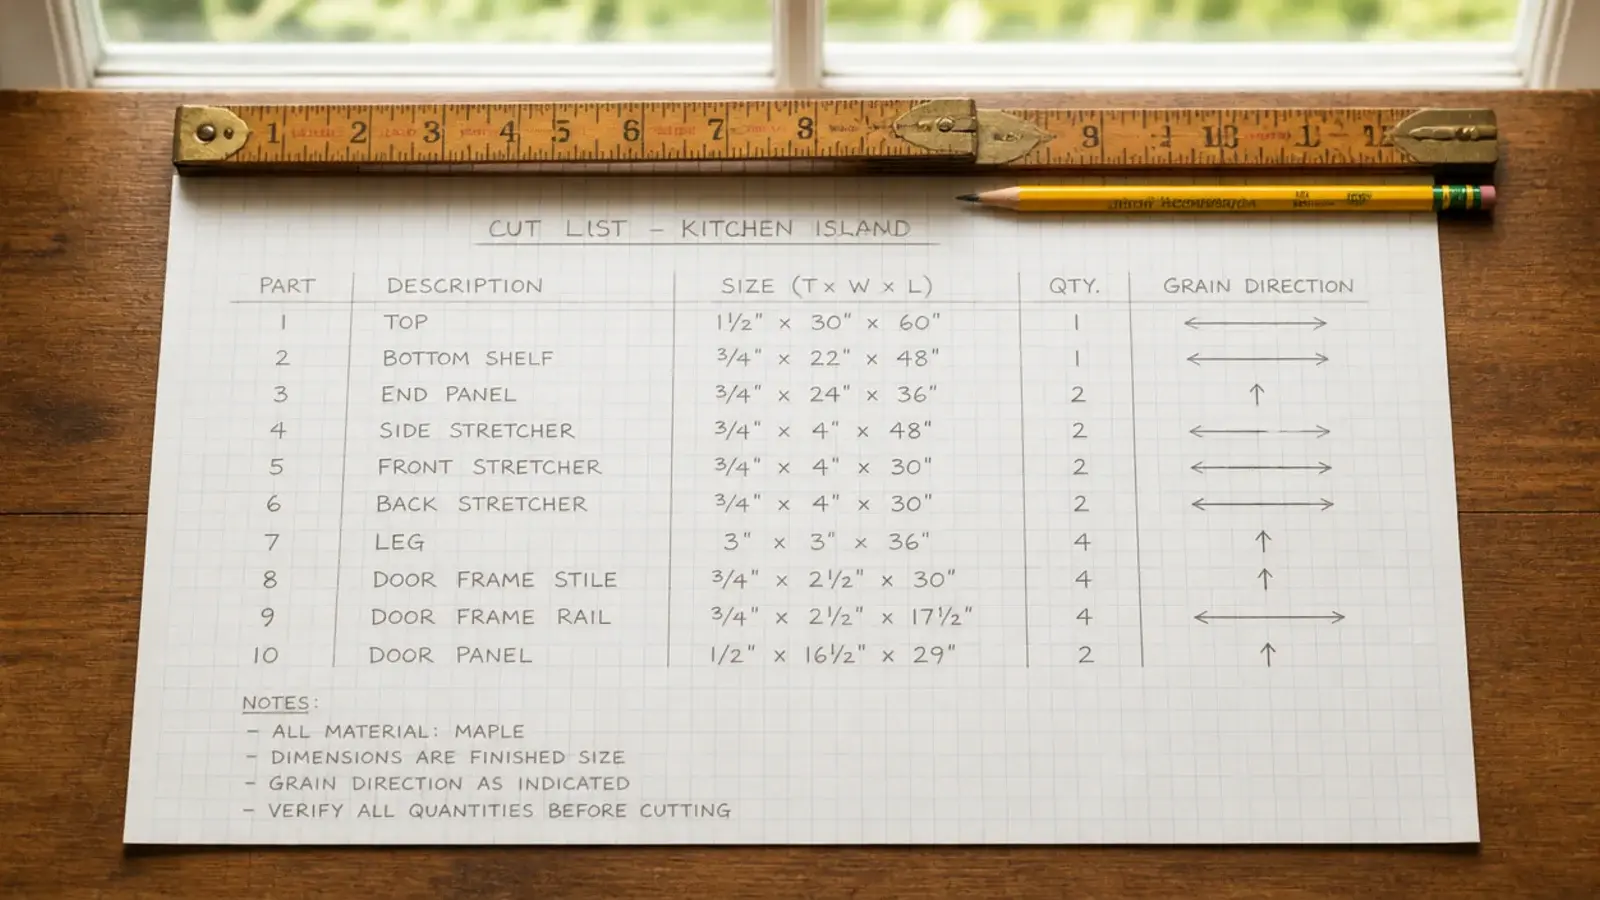 1 2 3 4 5 6 7 8 9 10 11
CUT LIST – KITCHEN ISLAND
PART DESCRIPTION SIZE (T x W x L) QTY. GRAIN DIRECTION
1 TOP 1 1/2" x 30" x 60" 1 ↔
2 BOTTOM SHELF 3/4" x 22" x 48" 1 ↔
3 END PANEL 3/4" x 24" x 36" 2 ↑
4 SIDE STRETCHER 3/4" x 4" x 48" 2 ↔
5 FRONT STRETCHER 3/4" x 4" x 30" 2 ↔
6 BACK STRETCHER 3/4" x 4" x 30" 2 ↔
7 LEG 3" x 3" x 36" 4 ↑
8 DOOR FRAME STILE 3/4" x 2 1/2" x 30" 4 ↑
9 DOOR FRAME RAIL 3/4" x 2 1/2" x 17 1/2" 4 ↔
10 DOOR PANEL 1/2" x 16 1/2" x 29" 2 ↑
NOTES:
– ALL MATERIAL: MAPLE
– DIMENSIONS ARE FINISHED SIZE
– GRAIN DIRECTION AS INDICATED
– VERIFY ALL QUANTITIES BEFORE CUTTING